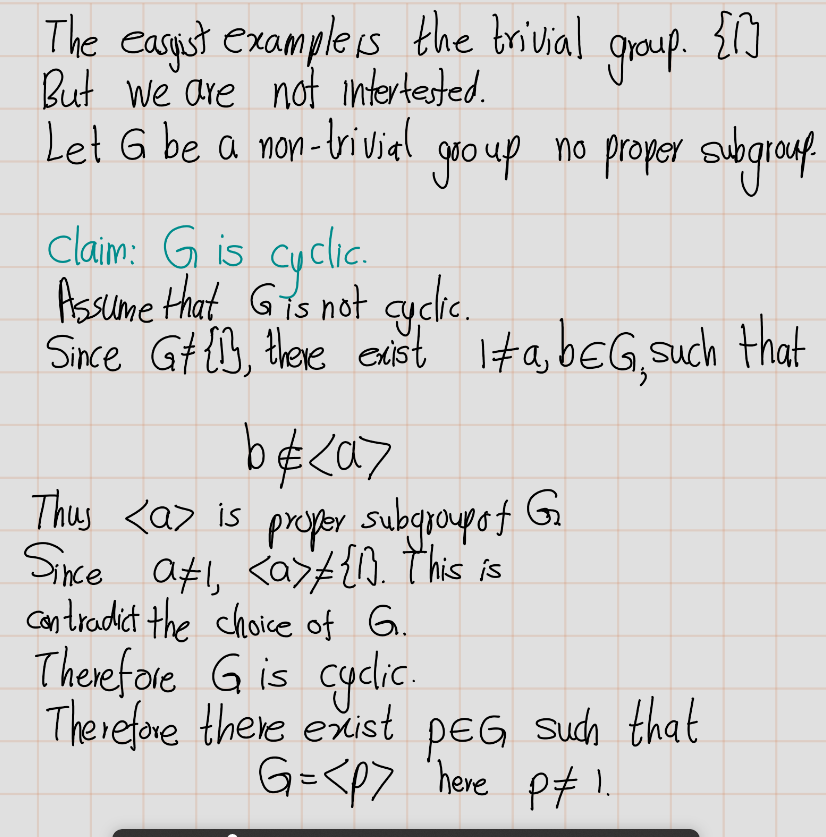 The easyist example is the trivial group. {1}
But we are not intertested.
Let G be a non-trivial group no proper subgroup.
Claim: G is cyclic.
Assume that G is not cyclic.
Since G≠{1}, there exist 1≠a, b∈G, such that
b∉<a>
Thus <a> is proper subgroup of G
Since a≠1, <a>≠{1}. This is
contradict the choice of G.
Therefore G is cyclic.
Therefore there exist p∈G such that
G=<p> here p≠1.